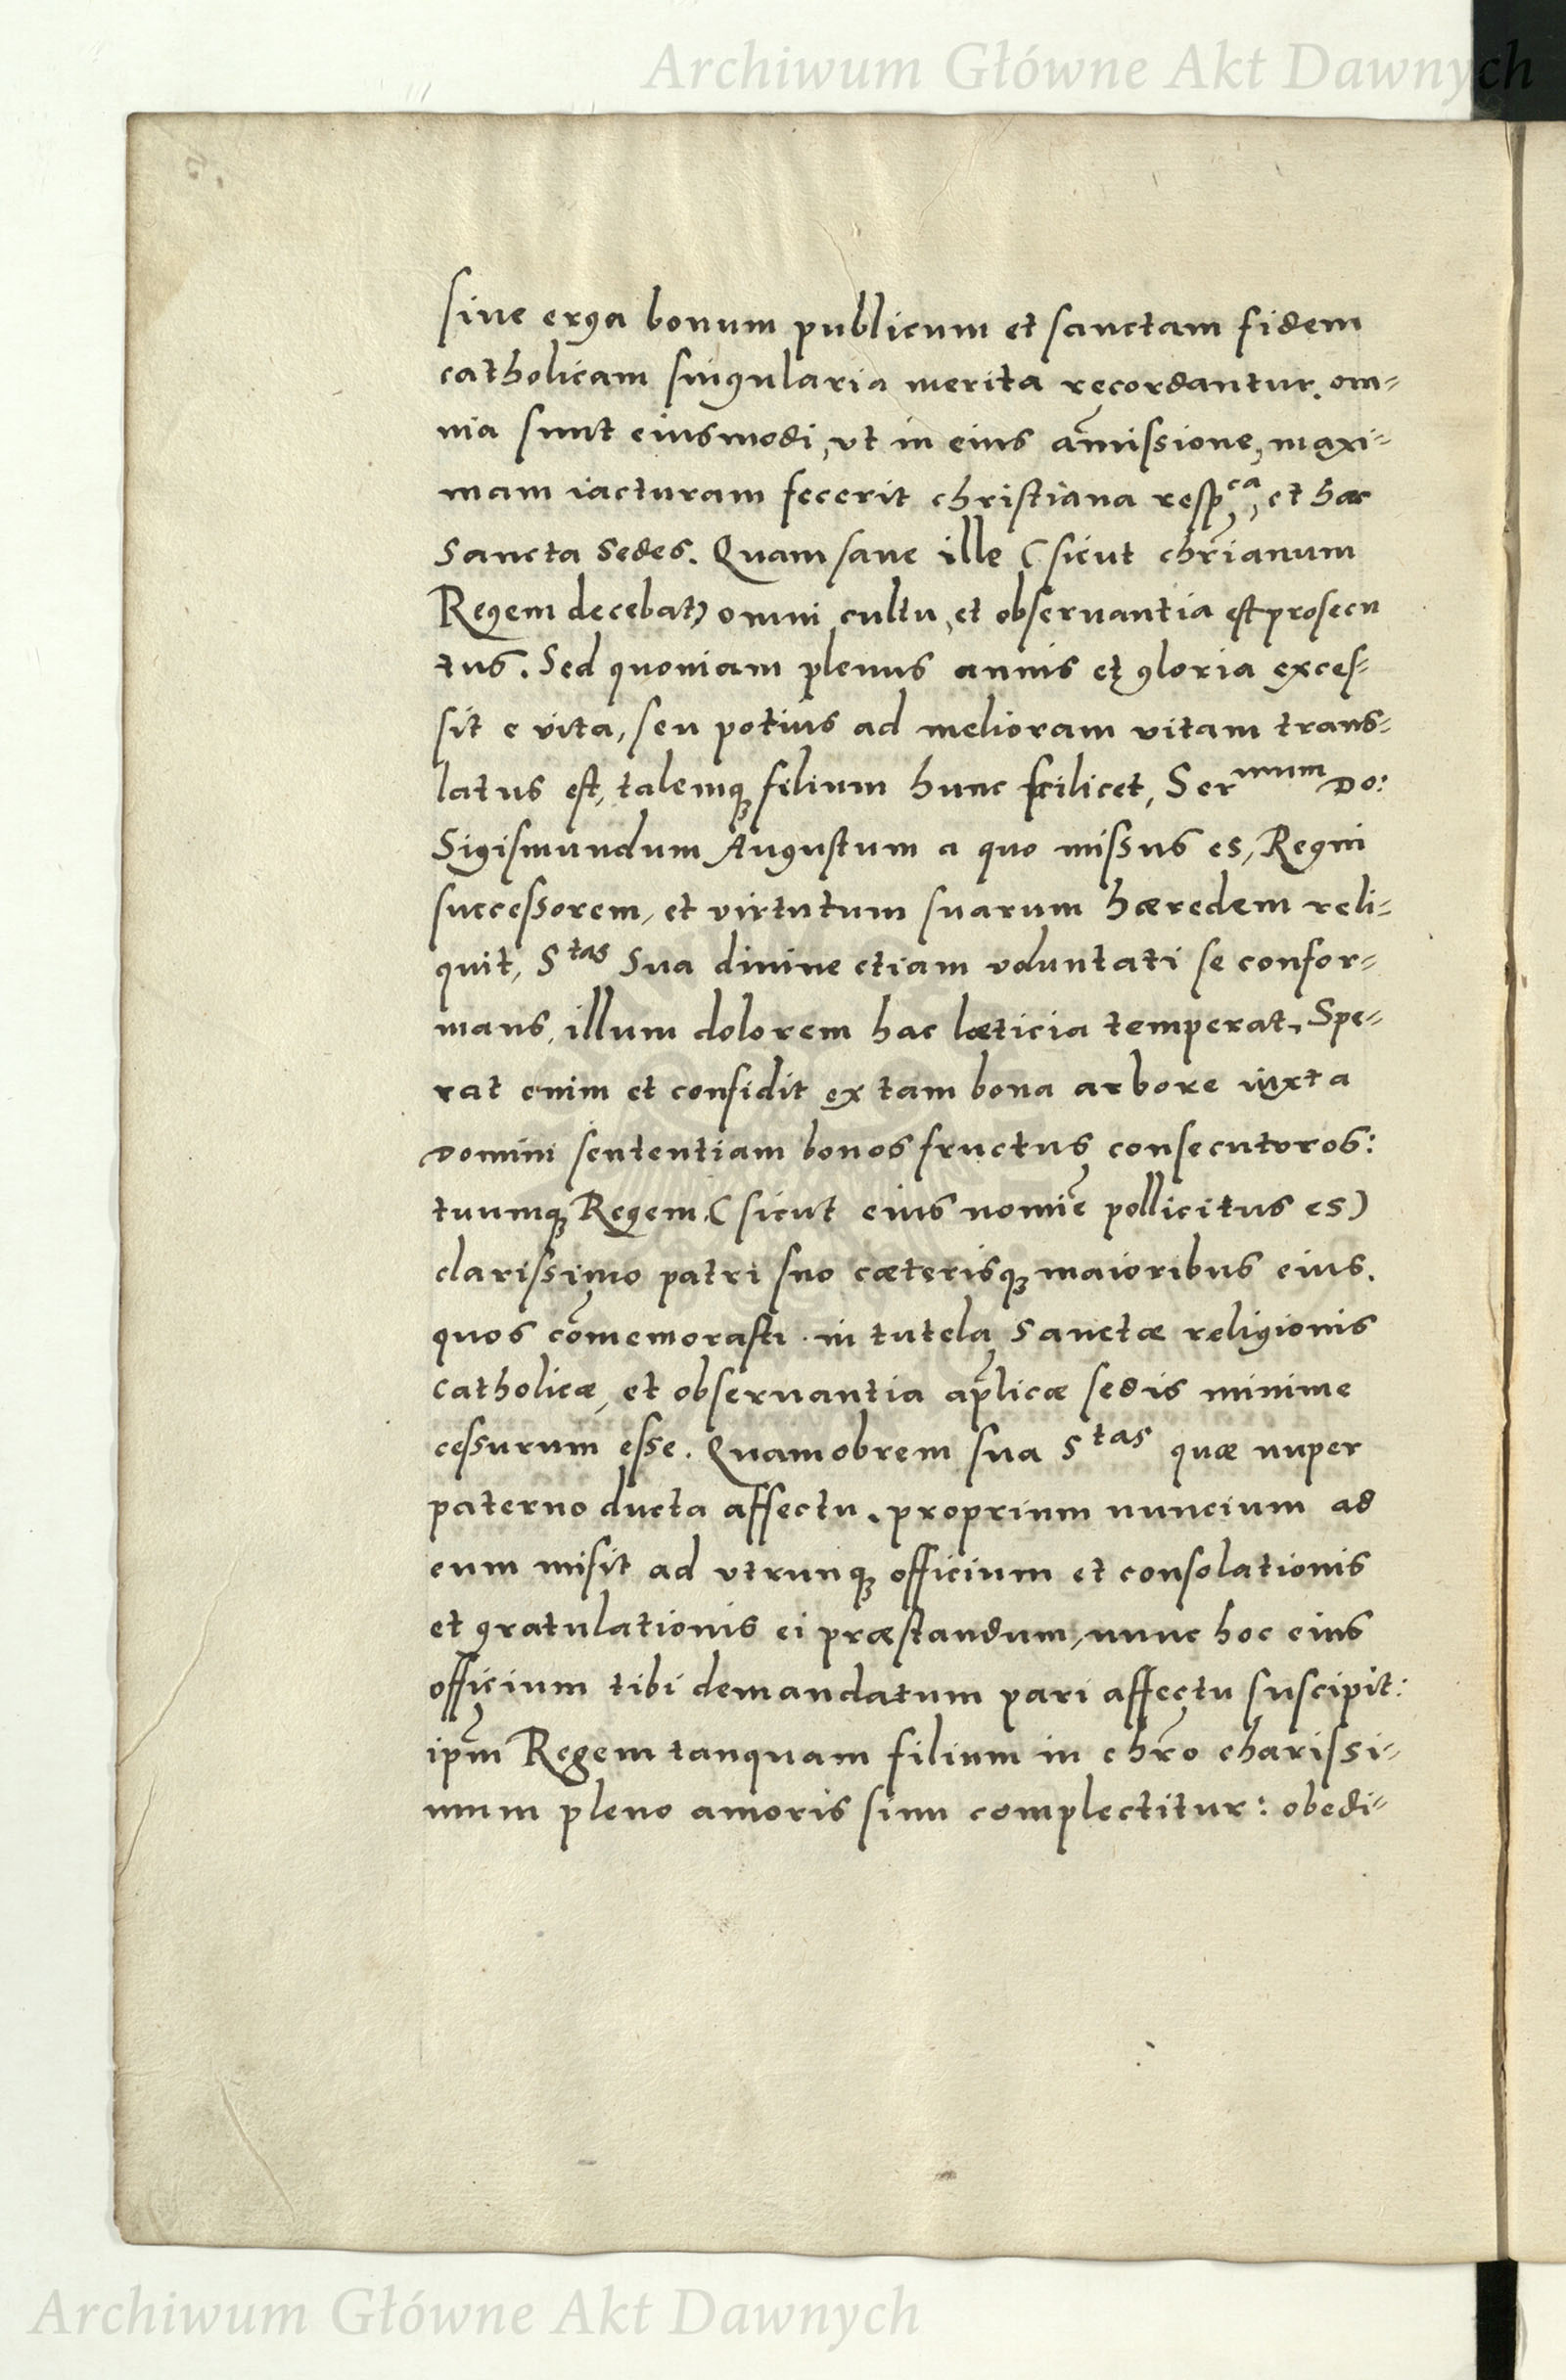 Archiwum Główne Akt Dawnych
siue erga bonum publicum et sanctam fidem
catholicam singularia merita recordantur. om=
nia sunt eiusmodi, ut in eius am̃issione, maxi=
mam iacturam fecerit christiana resp^ca, et haec
Sancta Sedes. Quam sane ille (sicut chr̃ianum
Regem decebat) omni cultu, et obseruantia est prosecu
tus. Sed quoniam plenus annis et gloria exces=
sit e vita, seu potius ad melioram vitam trans=
latus est, talemq; filium hunc scilicet, Ser^mum Do:
Sigismundum Augustum a quo missus es, Regni
successorem, et virtutum suarum hæredem reli=
quit, S^tas Sua diuine etiam voluntati se confor=
mans, illum dolorem hac læticia temperat, Spe=
rat enim et confidit ex tam bona arbore iuxta
Domini sententiam bonos fructus consecutoros:
tuumq; Regem (sicut eius nomiẽ pollicitus es)
clarissimo patri suo cæterisq; maioribus eius.
quos com̃emorasti. in tutela Sanctæ religionis
catholicæ, et obseruantia ap̃licæ sedis minime
cessurum esse. Quamobrem sua S^tas quæ nuper
paterno ducta affectu. proprium nuncium ad
eum misit ad utrunq; officium et consolationis
et gratulationis ei præstandum, nunc hoc eius
officium tibi demandatum pari affectu suscipit:
ip̃m Regem tanquam filium in chr̃o charissi=
mum pleno amoris sinu complectitur: obedi=
Archiwum Główne Akt Dawnych